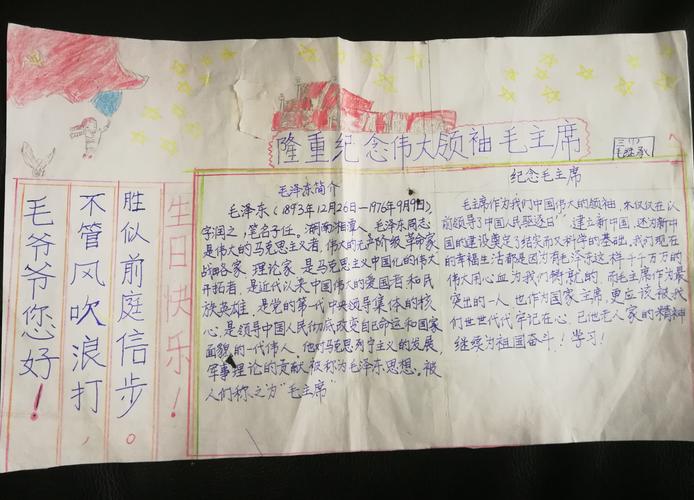 隆重纪念伟大领袖毛主席
三(1)
毛爷爷您好!
不管风吹浪打,
胜似前庭信步。
生日快乐!
毛泽东简介
毛泽东(1893年12月26日—1976年9月9日),
字润之,笔名子任。湖南湘潭人。毛泽东同志
是伟大的马克思主义者,伟大的无产阶级革命家
战略家 理论家 是马克思主义中国化的伟大
开拓者,是近代以来中国伟大的爱国者和民
族英雄,是党的第一代中央领导集体的核
心,是领导中国人民彻底改变自己命运和国家
面貌的一代伟人。他对马克思列宁主义的发展,
军事理论的贡献被称为毛泽东思想。被
人们称之为“毛主席”
纪念毛主席
毛主席作为我们中国伟大的领袖,不仅仅在以
前领导了中国人民驱逐日 建立新中国,还为新中
国的建设奠定了结实而又科学的基础,我们现在
的幸福生活都是因为有毛泽东这样千千万万的
伟大用心血为我们铸就的 而毛主席作为最
突出的一人 也作为国家主席,更应该被我
们世世代代牢记在心 已他老人家的精神
继续为祖国奋斗!学习!